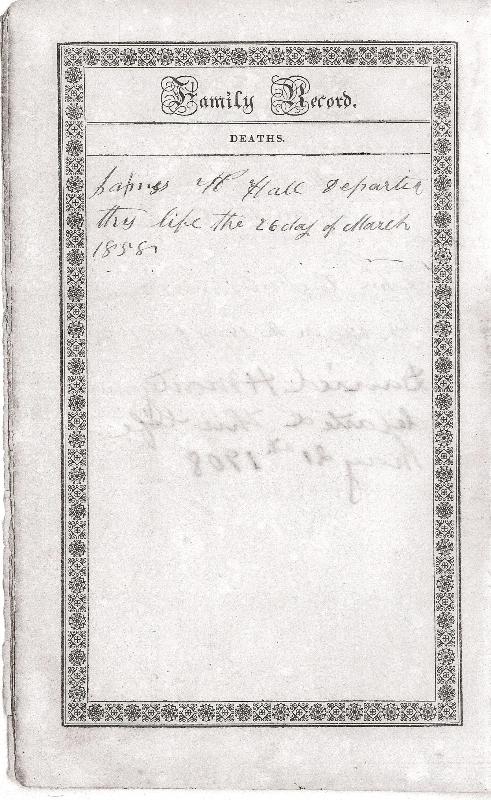 Family Record.
DEATHS.
James H Hall Departed
this life the 26 day of March
1858